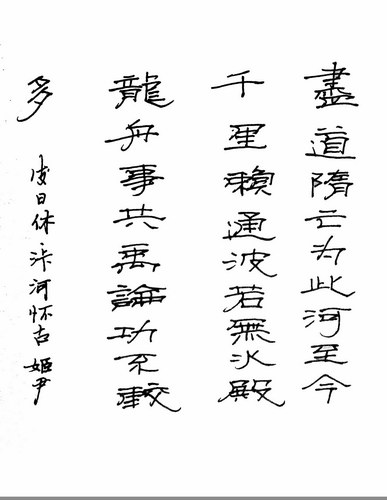 盡道隋亡为此河至今
千里賴通波若無水殿
龍舟事共禹論功不較
多
皮日休 汴河怀古 姬尹